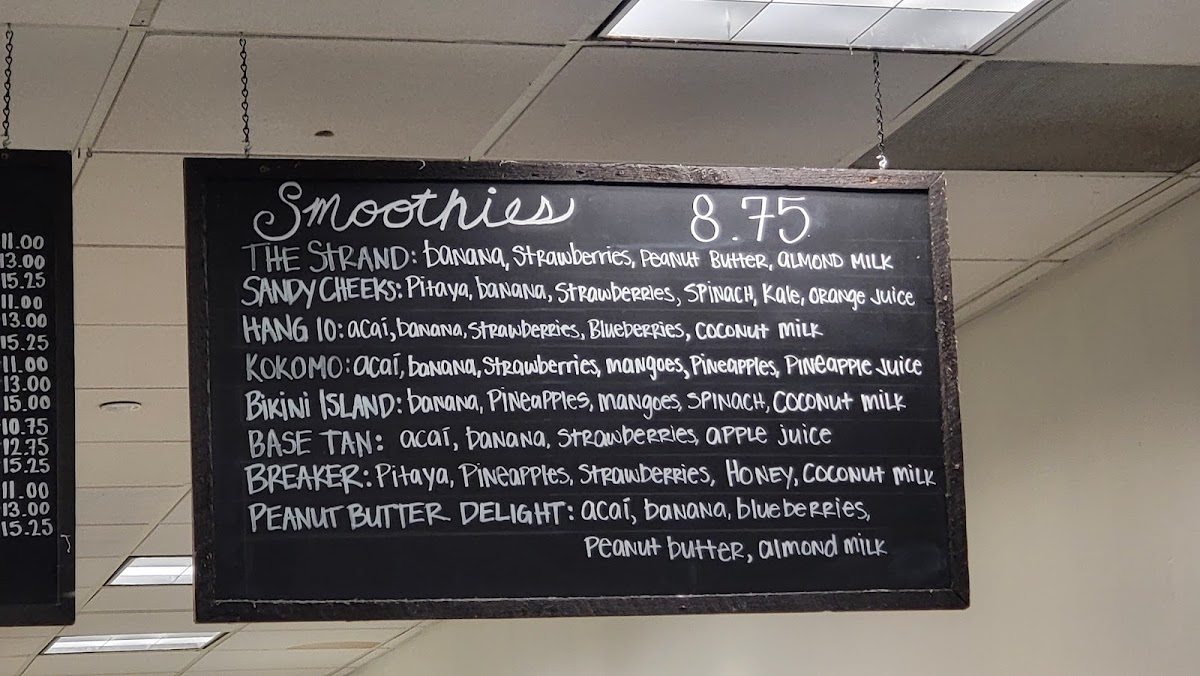 11.00
13.00
15.25
11.00
13.00
15.25
11.00
13.00
15.00
10.75
12.75
15.25
11.00
13.00
15.25
Smoothies 8.75
THE STRAND: banana, Strawberries, Peanut Butter, almond milk
SANDY CHEEKS: Pitaya, banana, Strawberries, SPINACH, Kale, orange juice
HANG 10: acaí, banana, strawberries, Blueberries, coconut milk
KOKOMO: acaí, banana, Strawberries, mangoes, Pineapples, Pineapple juice
BIKINI ISLAND: banana, Pineapples, mangoes, SPINACH, COCONUT milk
BASE TAN: acaí, banana, strawberries, apple juice
BREAKER: Pitaya, Pineapples, Strawberries, HONEY, COCONUT milk
PEANUT BUTTER DELIGHT: acaí, banana, blueberries,
Peanut butter, almond milk